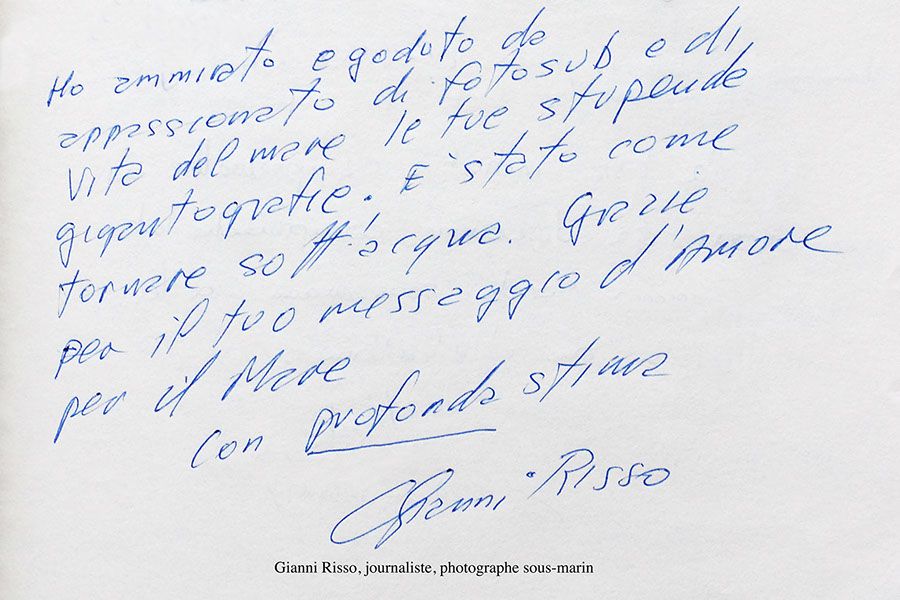 Ho ammirato e goduto da
appassionato di fotosub e di
vita del mare le tue stupende
gigantografie. E' stato come
tornare sott'acqua. Grazie
per il tuo messaggio d'Amore
per il Mare
con profonda stima
Gianni Risso
Gianni Risso, journaliste, photographe sous-marin